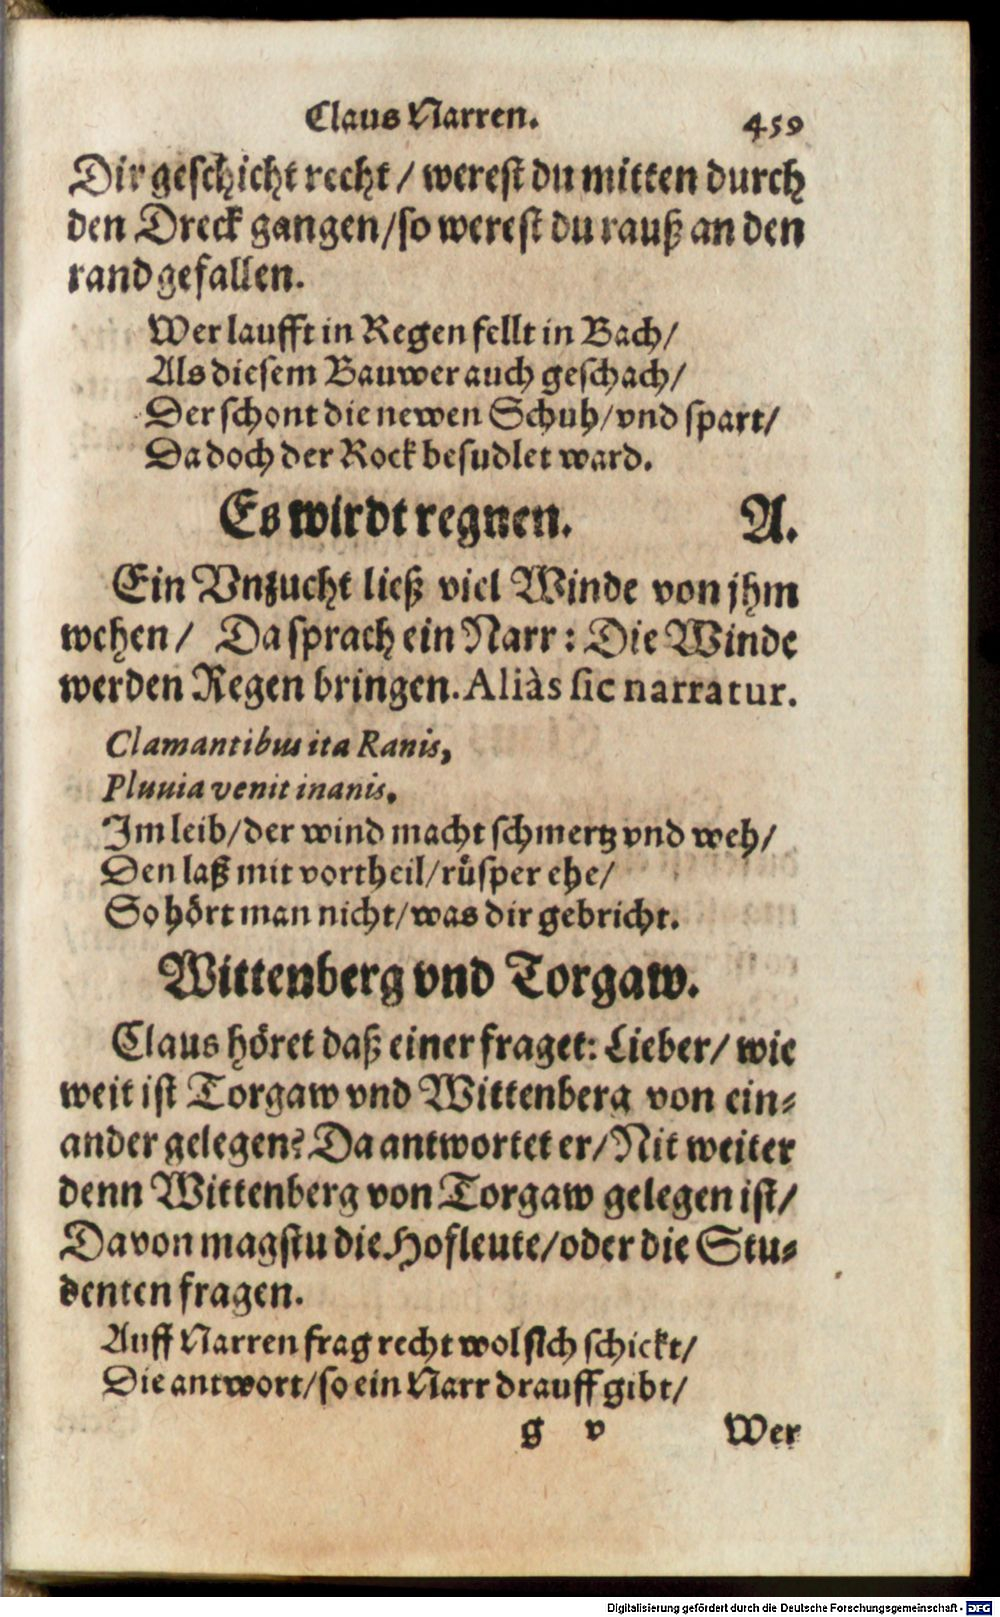 Claus Narren. 459
Dir geschicht recht / werest du mitten durch
den Dreck gangen/so werest du rauß an den
rand gefallen.
Wer laufft in Regen fellt in Bach/
Als diesem Bauwer auch geschach/
Der schont die newen Schuh/vnd spart/
Da doch der Rock besudlet ward.
Es wirdt regnen. A.
Ein Vnzucht ließ viel Winde von jhm
wehen/ Da sprach ein Narr: Die Winde
werden Regen bringen. Aliàs sic narratur.
Clamantibus ita Ranis,
Pluuia venit inanis.
Im leib/der wind macht schmertz vnd weh/
Den laß mit vortheil/růsper ehe/
So hört man nicht/was dir gebricht.
Wittenberg vnd Torgaw.
Claus höret daß einer fraget: Lieber/ wie
weit ist Torgaw vnd Wittenberg von ein⸗
ander gelegen? Da antwortet er/Nit weiter
denn Wittenberg von Torgaw gelegen ist/
Davon magstu die Hofleute/oder die Stu⸗
denten fragen.
Auff Narren frag recht wol sich schickt/
Die antwort/so ein Narr drauff gibt/
g v Wer
Digitalisierung gefördert durch die Deutsche Forschungsgemeinschaft - DFG